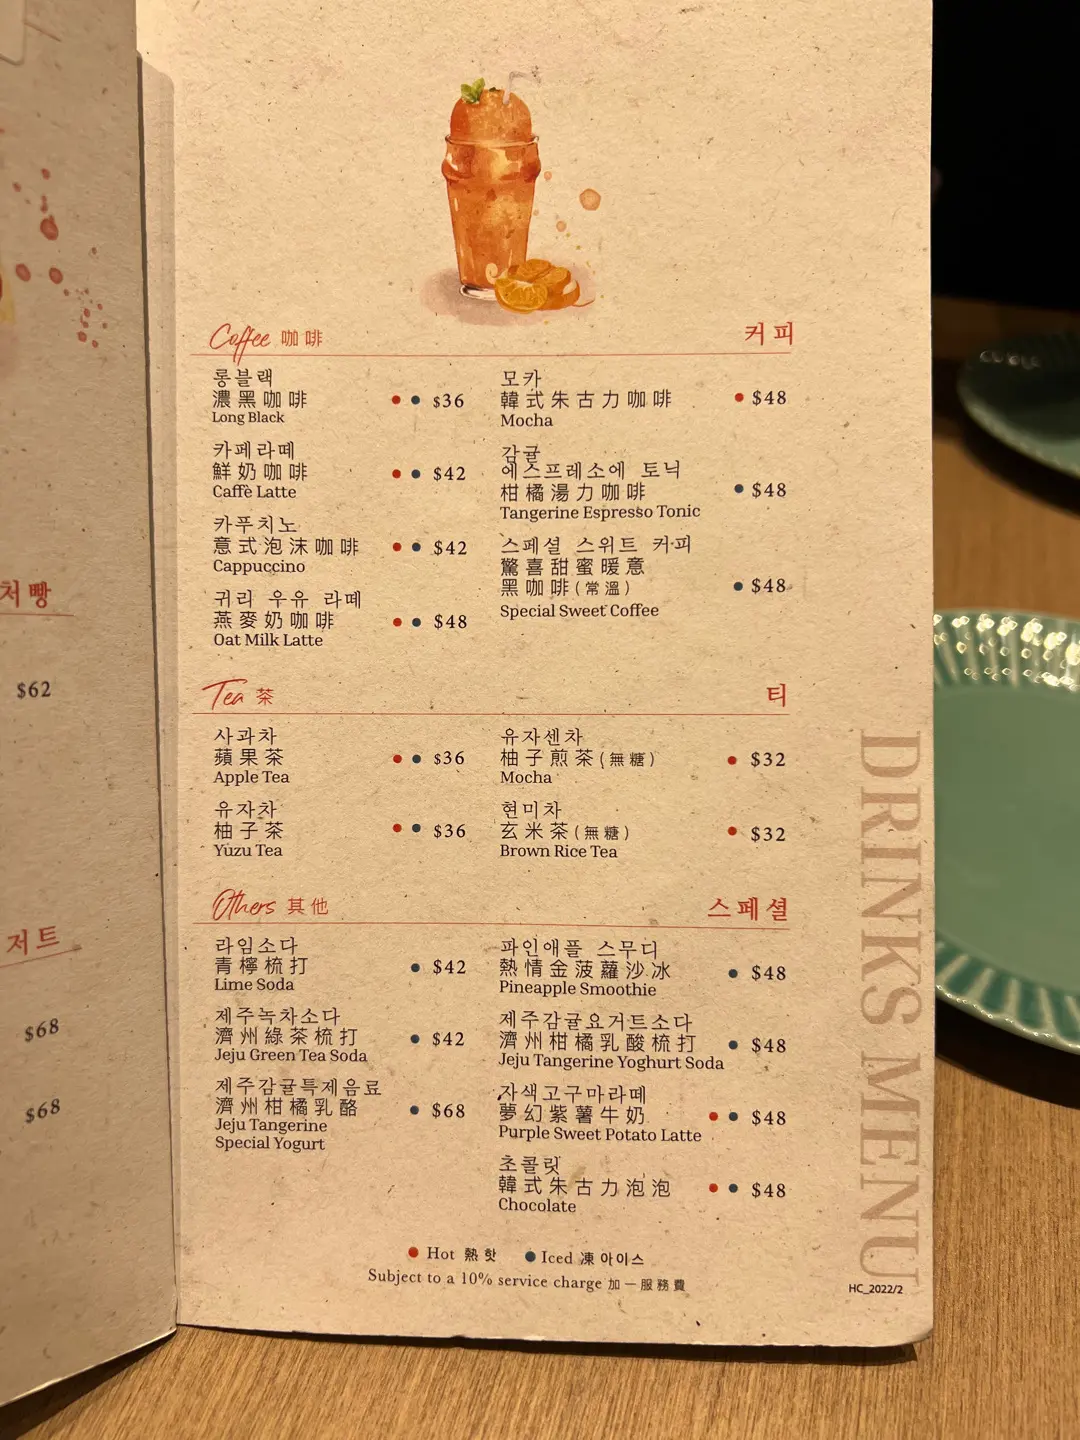 처빵
$62
저트
$68
$68
Coffee 咖啡
커피
롱블랙
濃黑咖啡 $36
Long Black
카페라떼
鮮奶咖啡 $42
Caffè Latte
카푸치노
意式泡沫咖啡 $42
Cappuccino
귀리 우유 라떼
燕麥奶咖啡 $48
Oat Milk Latte
모카
韓式朱古力咖啡 $48
Mocha
감귤
에스프레소에 토닉
柑橘湯力咖啡 $48
Tangerine Espresso Tonic
스페셜 스위트 커피
驚喜甜蜜暖意
黑咖啡(常溫) $48
Special Sweet Coffee
Tea 茶
티
사과차
蘋果茶 $36
Apple Tea
유자차
柚子茶 $36
Yuzu Tea
유자센차
柚子煎茶(無糖) $32
Mocha
현미차
玄米茶(無糖) $32
Brown Rice Tea
Others 其他
스페셜
라임소다
青檸梳打 $42
Lime Soda
제주녹차소다
濟州綠茶梳打 $42
Jeju Green Tea Soda
제주감귤특제음료
濟州柑橘乳酪 $68
Jeju Tangerine
Special Yogurt
파인애플 스무디
熱情金菠蘿沙冰 $48
Pineapple Smoothie
제주감귤요거트소다
濟州柑橘乳酸梳打 $48
Jeju Tangerine Yoghurt Soda
자색고구마라떼
夢幻紫薯牛奶 $48
Purple Sweet Potato Latte
초콜릿
韓式朱古力泡泡 $48
Chocolate
Hot 熱 핫 Iced 凍 아이스
Subject to a 10% service charge 加一服務費
DRINKS MENU
HC_2022/2